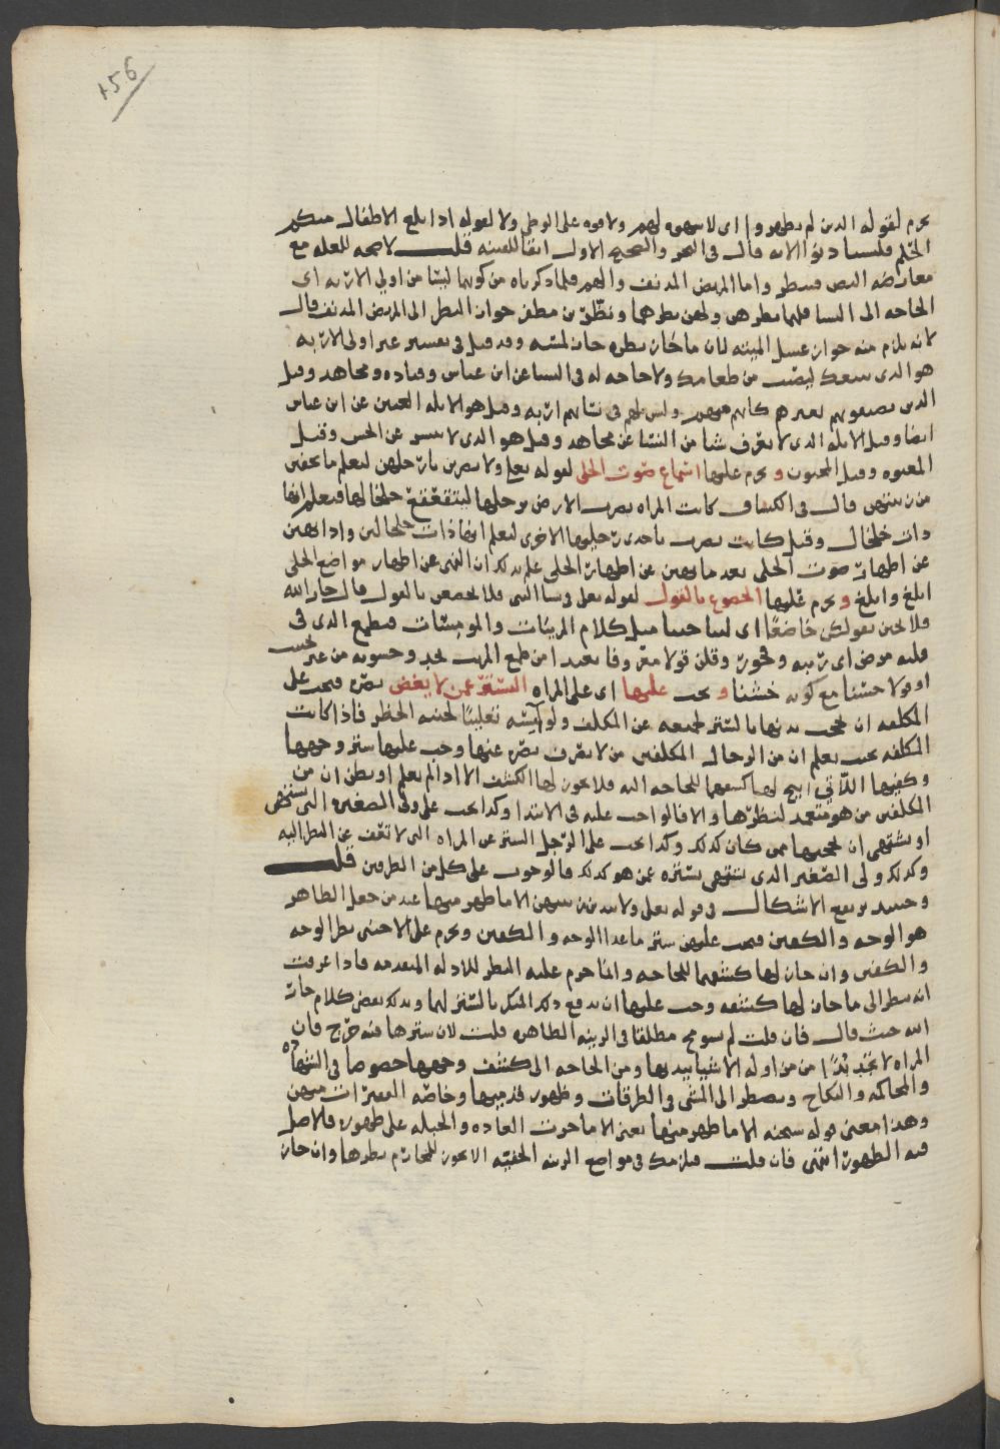 156
يحرم لقوله الذين لم يظهروا اى لا شهوه لهم ولا قوه على الوطى ولا لقوله اذا بلغ الاطفال منكم
الحلم فليستاذنوا الايه قال فى البحر والصحيح الاول اتقا للفتنه قلت لا صحه للعله مع
معارضه النص فينظر واما المريض المدنف والهم فلما ذكرناه من كونهما ليسا من اولي الاربه اى
الحاجه الى النسا فلهما نظرهن ولهن نظرهما ونظّر بن مظفر جواز النظر الى المريض المدنف قال
لانه يلزم منه جواز غسل الميته لان ما جاز نظره جاز لمسه وقد قيل فى تفسير غير اولى الاربه
هو الذى يتبعك ليصيب من طعامك ولا حاجه له فى النسا عن ابن عباس وقتاده ومجاهد وقيل
ايضا وقيل الابله الذى لا يعرف شيا من النسا عن مجاهد وقيل هو الذى لا ينتشر عن الحسن وقيل
المعتوه وقيل المجنون و يحرم عليها اسماع صوت الحلى لقوله تعلى ولا يضربن بارجلهن ليعلم ما يخفين
من زينتهن قال فى الكشاف كانت المراه تضرب الارض برجلها ليتقعقع خلخالها فيعلم انها
ذات خلخال وقيل كانت تضرب باحدى رجليها الاخرى ليعلم انها ذات خلخالين واذا نهين
عن اظهار صوت الحلى بعد ما نهين عن اظهار الحلى علم بذلك ان النهى عن اظهار مواضع الحلى
ابلغ وابلغ و يحرم عليها الخضوع بالقول لقوله تعلى يا نسا النبى فلا تخضعن بالقول قال جار الله
فلا تجبن بقولكن خاضعًا اى لينا خنثا مثل كلام المريبات والمومسات فيطمع الذى فى
قلبه مرض اى ريبه وفجور وقلن قولا معروفا بعيدا من طمع المريب بجد وخشونه من غير تخنيث
او قولا حسنا مع كونه خشنا و يجب عليها اى على المراه التستر عمن لا يغض بصره فيجب على
المكلفه ان تحجب بدنها بالتستر لجميعه عن المكلف ولو آيسه تغليبًا لجنبه الحظر فاذا كانت
المكلفه بحيث تعلم ان من الرجال المكلفين من لا يصرف بصره عنها وجب عليها ستر وجهها
وكفيها اللاتي ابيح لها كشفهما للحاجه اليه فلا يجوز لها الكشف الا اذا لم تعلم او تظن ان من
المكلفين من هو متعمد لنظرها والا فالواجب عليه فى الابتدا وكذا يجب على ولى الصغيره التى تشتهى
او تشتهى ان يحجبها ممن كان كذلك وكذا يجب على الرجل الستر عن المراه التى لا تعف عن النظر اليه
وكذلك ولى الصغير الذى يشتهى يستره عن من هو كذلك فالوجوب على كل من الطرفين قلت
وحينئذ يرتفع الاشكال فى قوله تعلى ولا يبدين زينتهن الا ما ظهر منها عند من جعل الظاهر
هو الوجه والكفين فيجب عليهن ستر ما عدا الوجه والكفين ويحرم على الاجنبى نظر الوجه
والكفين وان جاز لها كشفهما للحاجه وانما حرم عليه النظر للادله المتقدمه فاذا عرفت
انه ينظر الى ما جاز لها كشفه وجب عليها ان تدفع ذلك المنكر بالتستر لهما ويدلك بعض كلام جار
الله حيث قال فان قلت لم سومح مطلقا فى الزينه الظاهره قلت لان سترها فيه حرج فان
المراه لا تجد بُدًّا من مزاوله الاشيا بيديها ومن الحاجه الى كشف وجهها خصوصا فى الشهاده
والمحاكمه والنكاح وتضطر الى المشى فى الطرقات وظهور قدميها وخاصّه الفقيرات منهن
وهذا معنى قوله سبحنه الا ما ظهر منها يعنى الا ما جرت العاده والجبله على ظهوره فالاصل
فيه الظهور انتهى فان قلت فيلزمك فى مواضع الزينه الخفيه الا يجوز للمحارم نظرها وان جاز